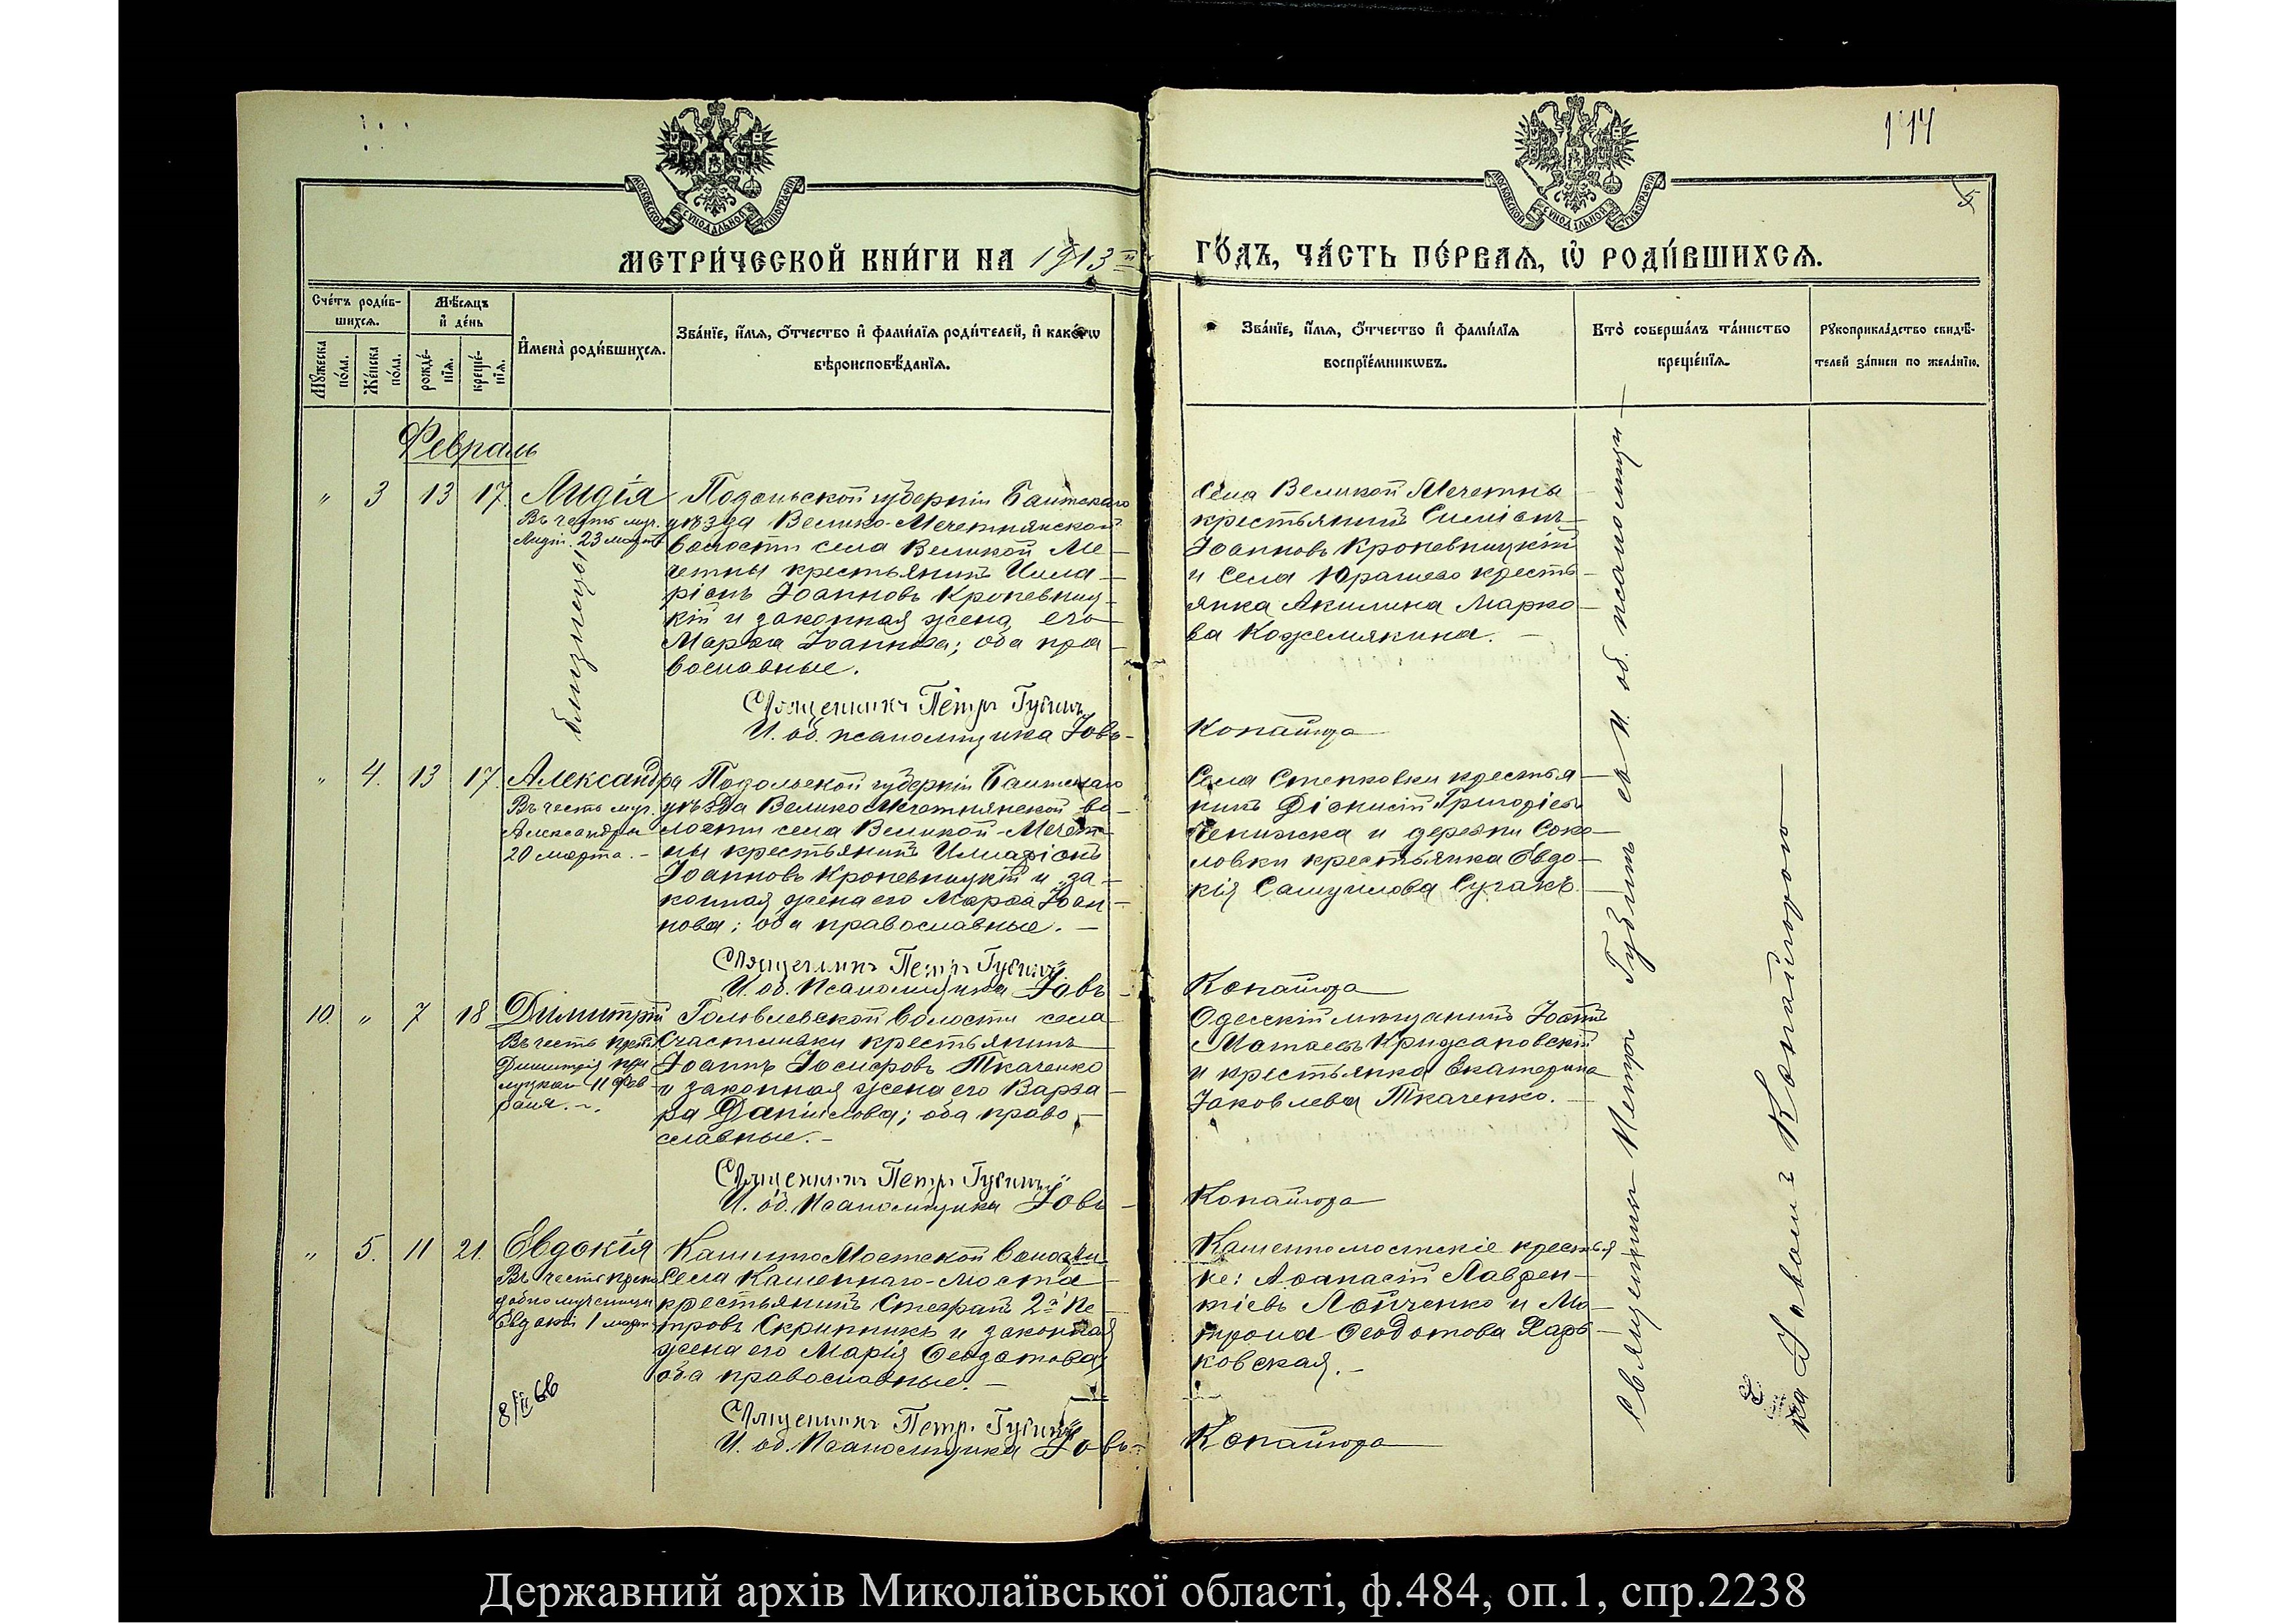 144
5
МОСКОВСКОЙ СѴНОДАЛЬНОЙ ТИПОГРАФІИ
МОСКОВСКОЙ СѴНОДАЛЬНОЙ ТИПОГРАФІИ
МЕТРИ́ЧЕСКОЙ КНИ́ГИ НА 1913 й
ГО́ДЪ, ЧА́СТЬ ПЕ́РВАЯ, Ѡ҆ РОДИ́ВШИХСЯ.
Сче́тъ роди́в-
шихся.
Мѣ́сяцъ
и҆ де́нь
Мꙋ́жеска по́ла.
Же́нска по́ла.
рожде́-нїя.
креще́-нїя.
И҆мена̀ роди́вшихся.
Зва́нїе, и҆́мя, ѻ҆́тчество и҆ фами́лїя роди́телей, и҆ како́гѡ
вѣроисповѣ́данїя.
Зва́нїе, и҆́мя, ѻ҆́тчество и҆ фами́лїя
воспрїе́мникѡвъ.
Кто̀ соверша́лъ та́инство
креще́нїя.
Рꙋкоприкла́дство свидѣ́-
телей за́писи по жела́нїю.
Февраль
" 3 13 17. Лидія
Въ честь муч.
Лидіи. 23 марта
Подольской губерніи Балтскаго
уѣзда Велико-Мечетнянской
волости села Великой Ме-
четны крестьянинъ Илла-
ріонъ Іоанновъ Кропевниц-
кій и законная жена его
Марѳа Іоаннова; оба пра-
вославные.
Священникъ Петръ Губинъ
И. об. псаломщика Іовъ
Села Великой Мечетны
крестьянинъ Симеонъ
Іоанновъ Кропевницкій
и села Юрашево кресть-
янка Акилина Марко-
ва Кожемякина.
Копайгора
близнецы
" 4. 13 17. Александра
Въ честь муч.
Александры
20 марта.
Подольской губерніи Балтскаго
уѣзда Велико Мечетнянской во-
лости села Великой-Мечет-
ны крестьянинъ Илларіонъ
Іоанновъ Кропевницкій и за-
конная жена его Марѳа Іоан-
нова; оба православные.
Священникъ Петръ Губинъ
И. об. Псаломщика Іовъ
Села Степковки крестья-
нинъ Діонисій Григоріевъ
и деревни Соко-
ловки крестьянка Евдо-
кія Самуилова Сугакъ.
Копайгора
10. " 7 18 Димитрій
Въ честь преп.
Димитрія при
луцкаго 11 фев
раля.
Головлевской волости села
Счастливки крестьянинъ
Іоаннъ Іосифовъ Ткаченко
и законная жена его Варва-
ра Даніилова; оба право-
славные.
Священникъ Петръ Губинъ
И. об. Псаломщика Іовъ
Одесскій мѣщанинъ Іоаннъ
Матѳеевъ Крижановскій
и крестьянка Екатерина
Іаковлева Ткаченко.
Копайгора
" 5. 11 21. Евдокія
Въ честь препо
добно мученицы
Евдокіи 1 марта
8/II 66
Каменно Мостской волости
Села Каменнаго-Моста
крестьянинъ Стефанъ 2й Пе-
тровъ Скрипникъ и законная
жена его Марія Ѳеодотова
оба православные.
Священникъ Петръ Губинъ
И. об. Псаломщика Іовъ
Каменномостскіе крестья
не: Аѳанасій Лаврен-
тіевъ Лойченко и Ма-
трона Ѳеодотова Харь-
ковская.
Копайгора
Священникъ Петръ Губинъ съ И. об. псаломщи-
ка Іовомъ Копайгорою
Державний архів Миколаївської області, ф.484, оп.1, спр.2238